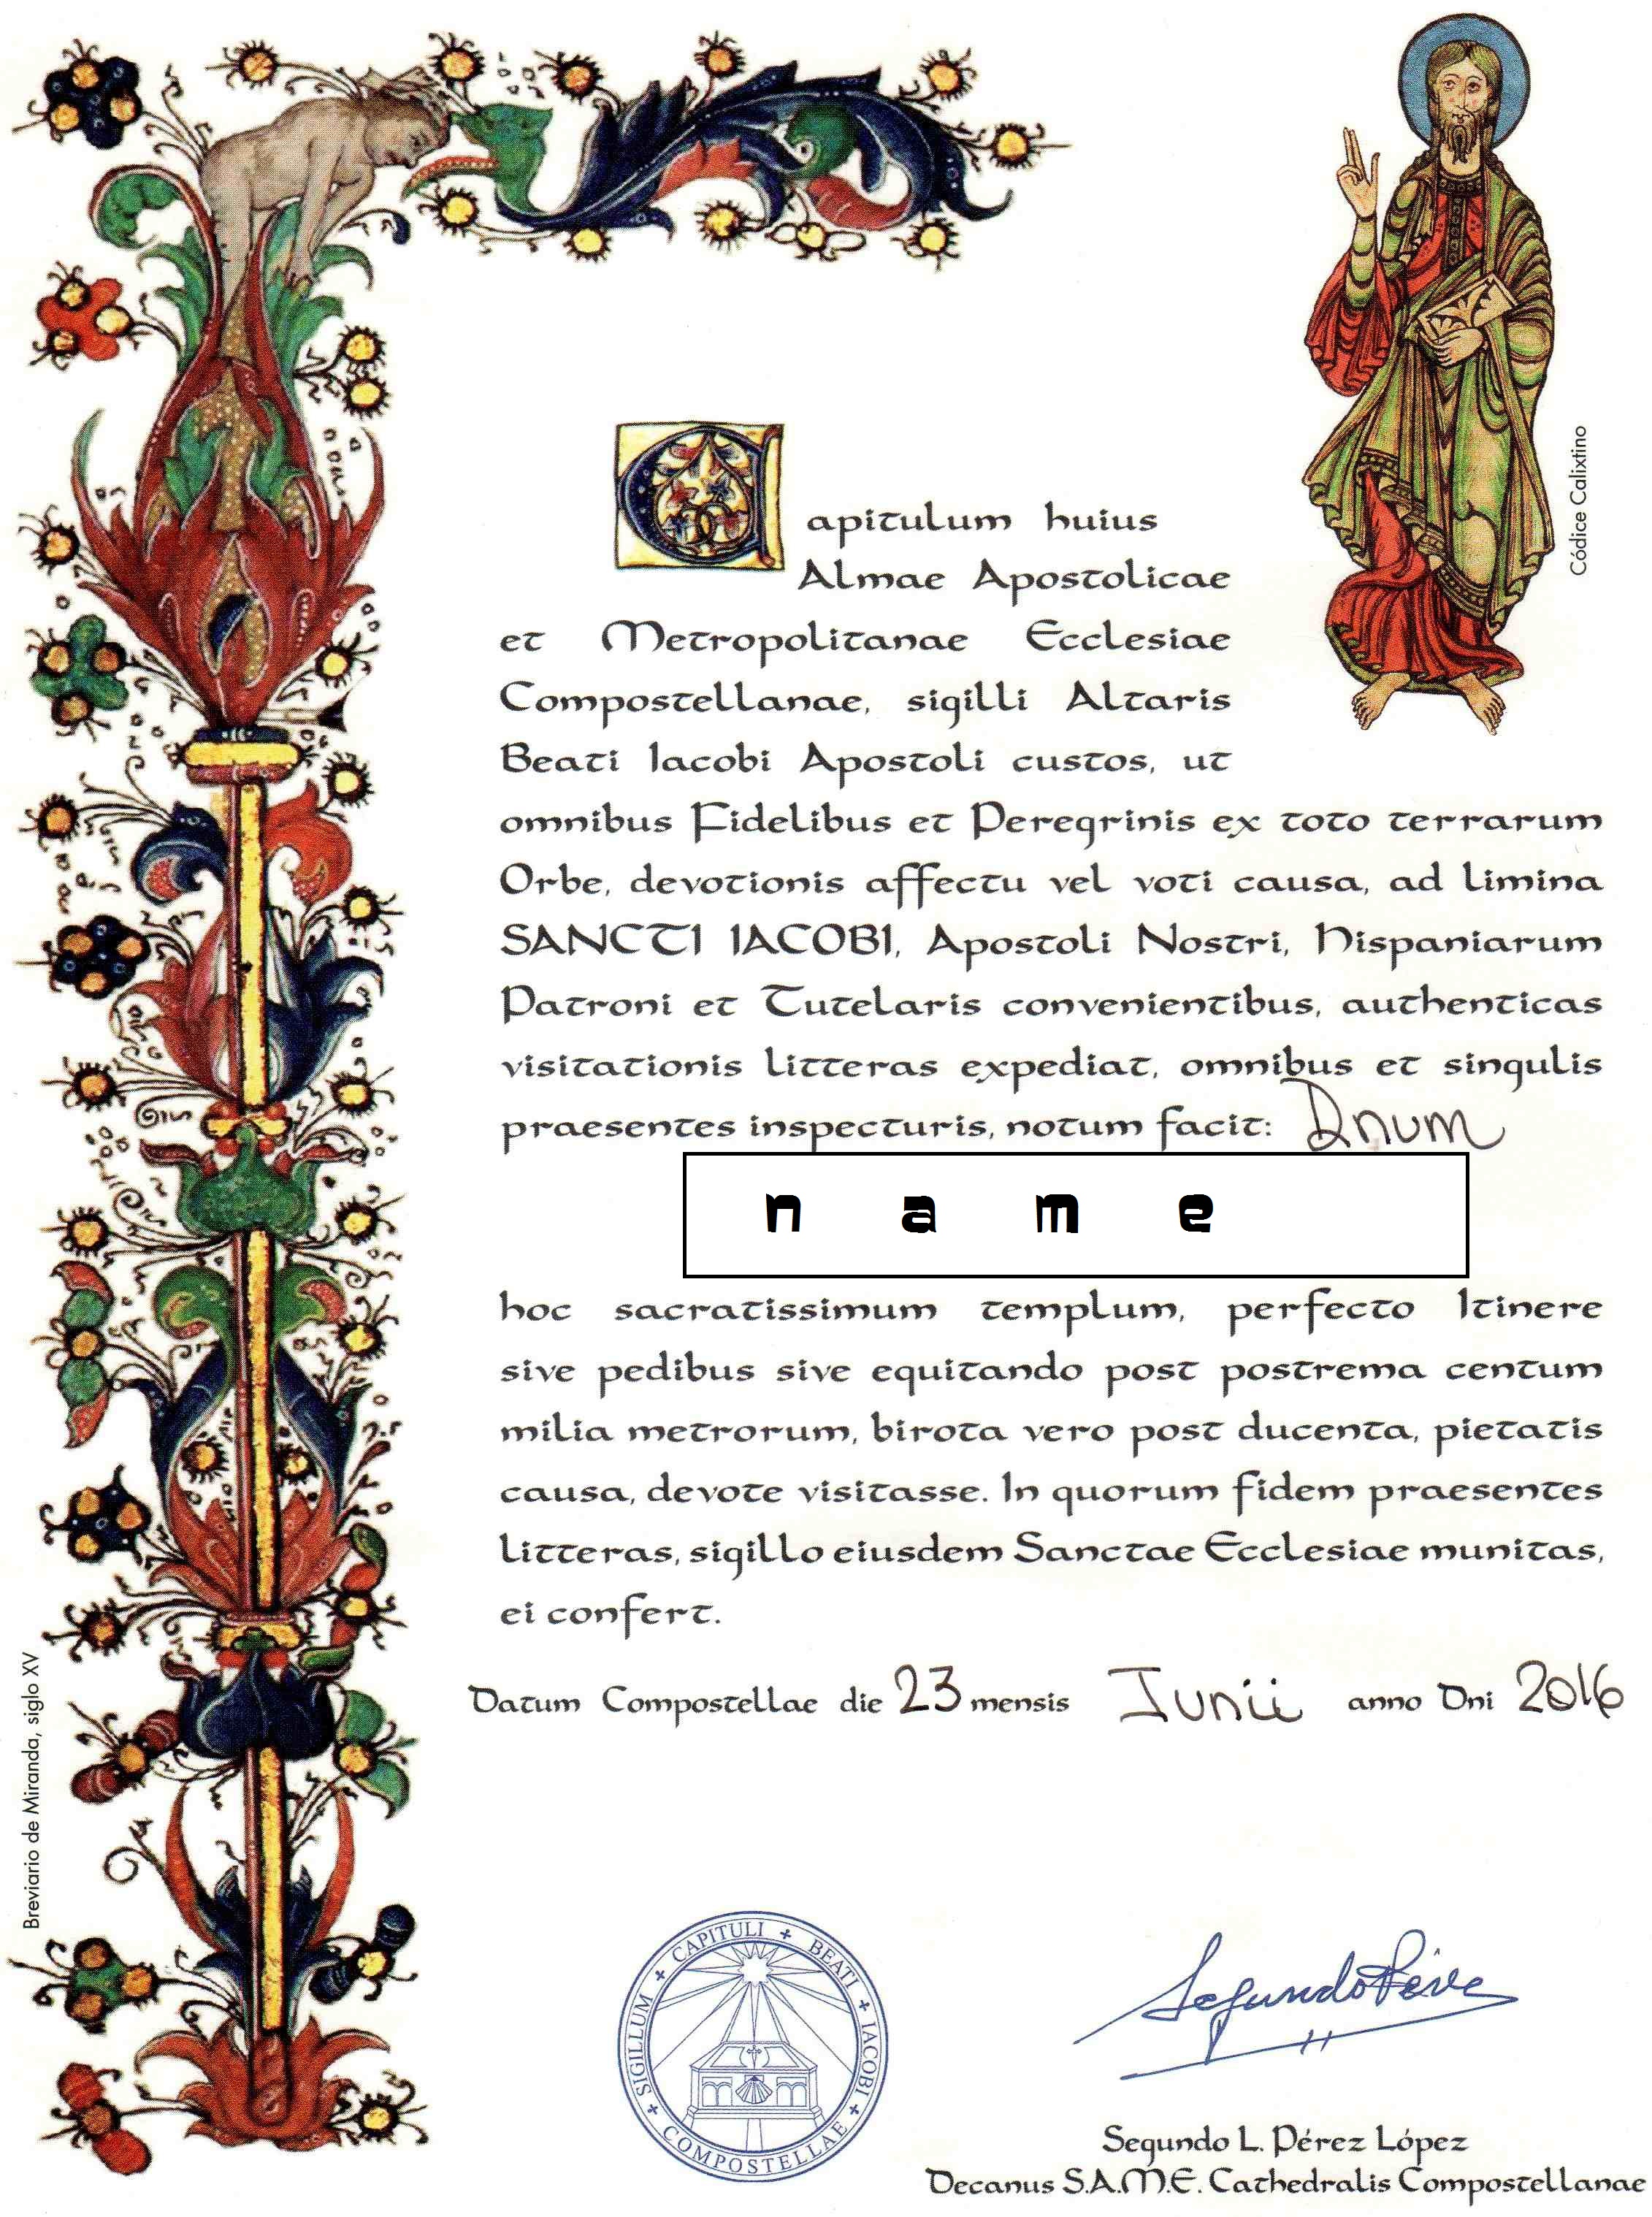 Códice Calixtino
Capitulum huius
Almae Apostolicae
et Metropolitanae Ecclesiae
Compostellanae, sigilli Altaris
Beati Iacobi Apostoli custos, ut
omnibus Fidelibus et Peregrinis ex toto terrarum
Orbe, devotionis affectu vel voti causa, ad limina
SANCTI IACOBI, Apostoli Nostri, Hispaniarum
Patroni et Tutelaris convenientibus, authenticas
visitationis litteras expediat, omnibus et singulis
praesentes inspecturis, notum facit: Dnum
n a m e
hoc sacratissimum templum, perfecto Itinere
sive pedibus sive equitando post postrema centum
milia metrorum, birota vero post ducenta, pietatis
causa, devote visitasse. In quorum fidem praesentes
litteras, sigillo eiusdem Sanctae Ecclesiae munitas,
ei confert.
Datum Compostellae die 23 mensis Iunii anno Dni 2016
Breviario de Miranda, siglo XV
SIGILLUM + CAPITULI + BEATI + IACOBI + COMPOSTELLAE +
Segundo Pérez
Segundo L. Pérez López
Decanus S.A.M.E. Cathedralis Compostellanae